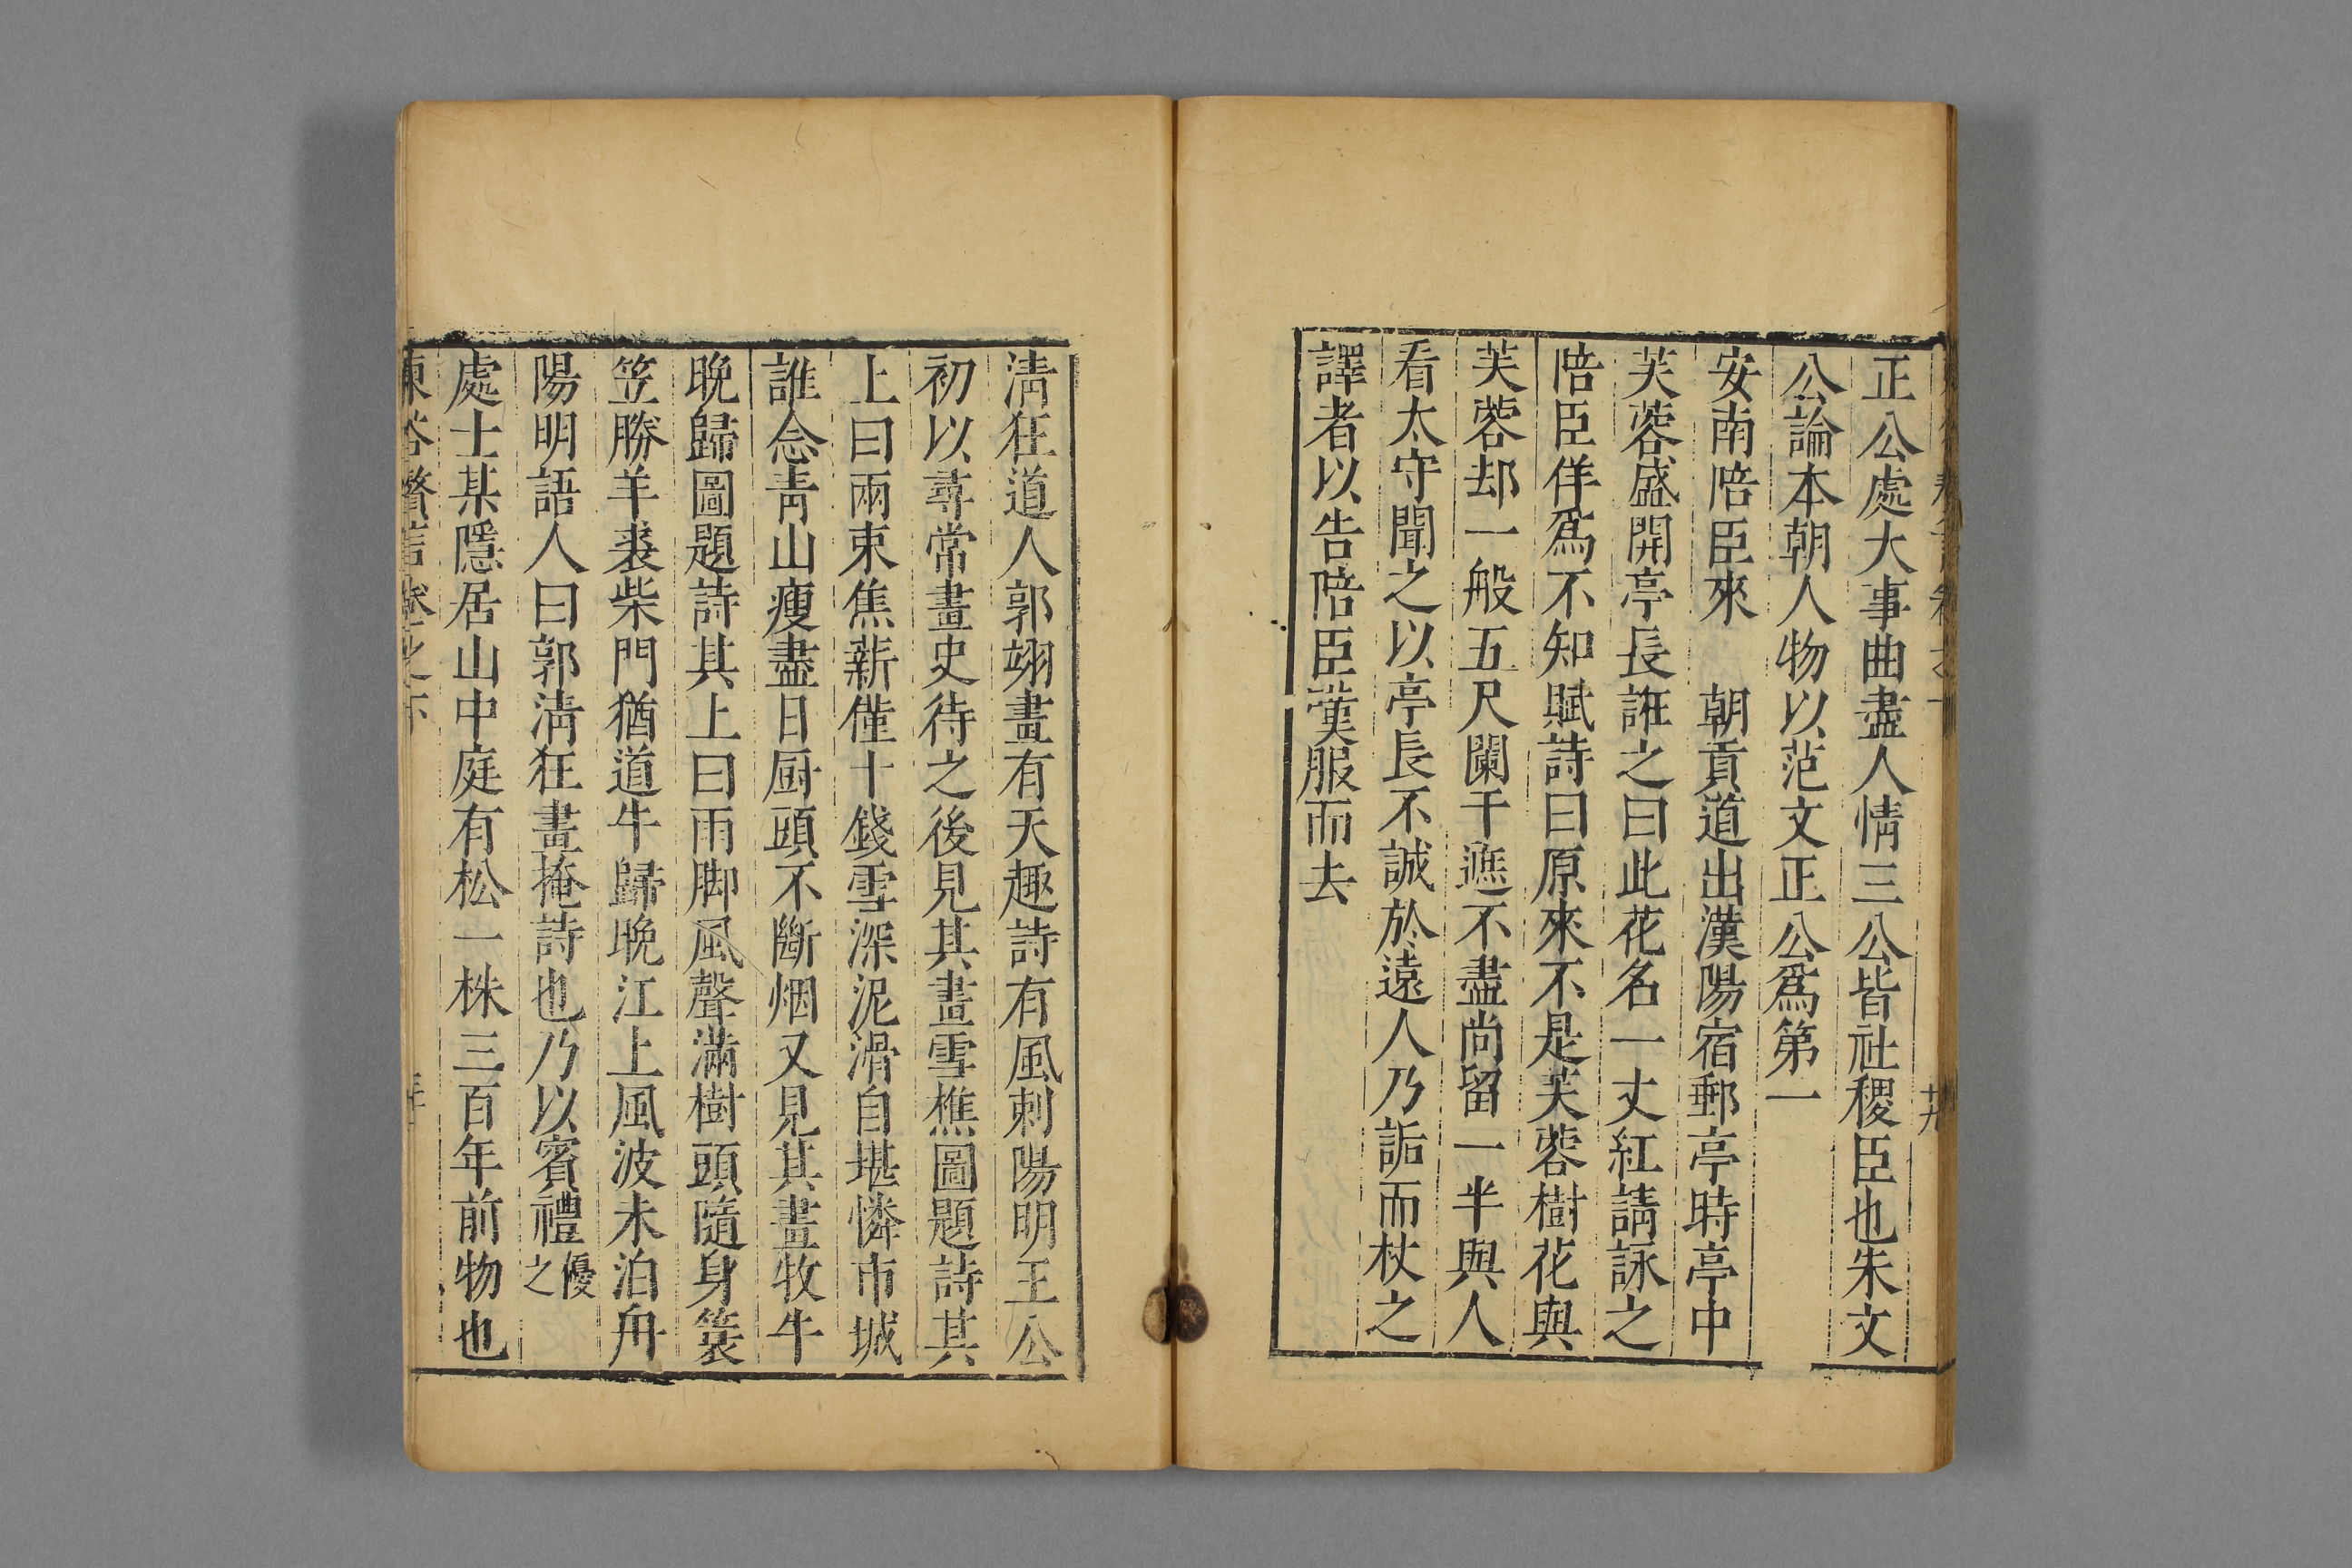 正公處大事曲盡人情三公皆社稷臣也朱文
公論本朝人物以范文正公爲第一
安南陪臣來　朝貢道出漢陽宿郵亭時亭中
芙蓉盛開亭長誑之曰此花名一丈紅請詠之
陪臣佯爲不知賦詩曰原來不是芙蓉樹花與
芙蓉却一般五尺闌干遮不盡尚留一半與人
看太守聞之以亭長不誠於遠人乃詬而杖之
譯者以告陪臣漢服而去
十九
清狂道人郭翊畫有天趣詩有風刺陽明王公
初以尋常畫史待之後見其畫雪樵圖題詩其
上曰兩束焦薪僅十錢雪深泥滑自堪憐市城
誰念青山瘦盡日厨頭不斷烟又見其畫牧牛
晚歸圖題詩其上曰雨脚風聲滿樹頭隨身簑
笠勝羊裘柴門猶道牛歸晚江上風波未泊舟
陽明語人曰郭清狂畫掩詩也乃以賓禮優之
處士某隱居山中庭有松一株三百年前物也
卷之下